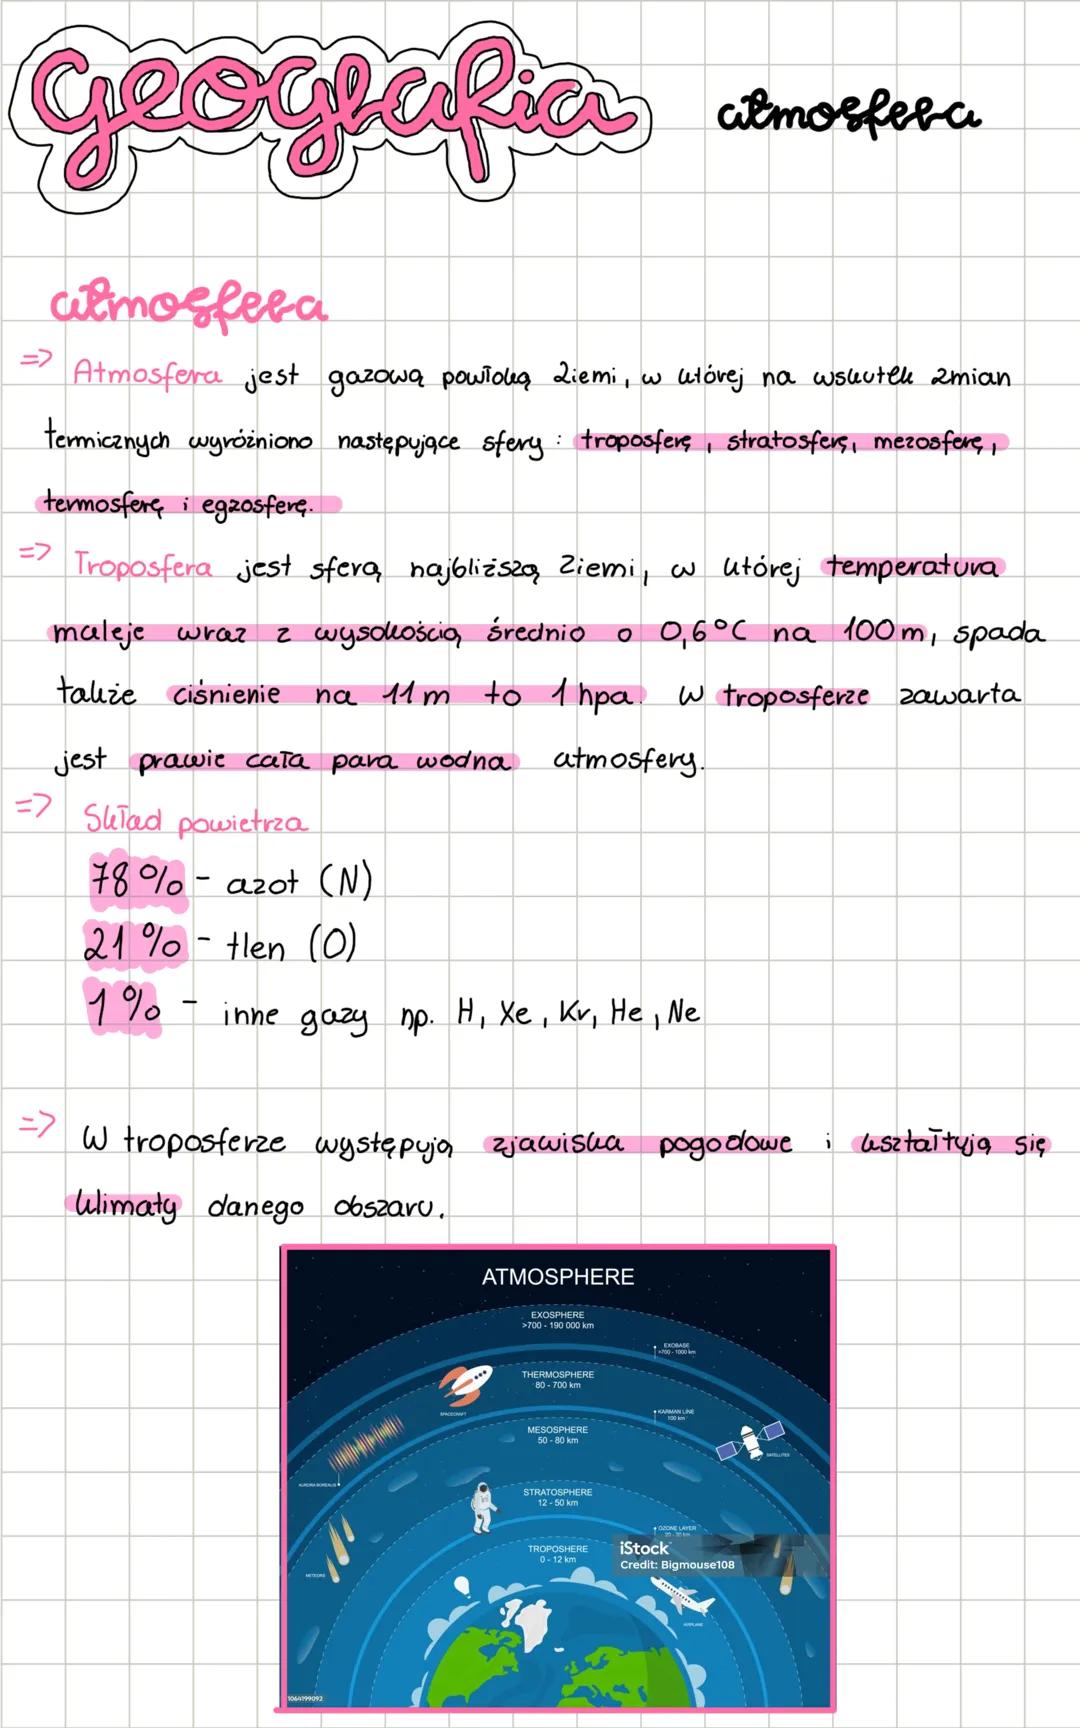 geografia
atmosfera
atmosfera
=> Atmosfera jest gazową powłoką Ziemi, w której na wskutek zmian
termicznych wyróżniono następujące sfery: troposferę, stratosferę, mezosferę,
termosferę i egzosferę.
=> Troposfera jest sferą najbliższą Ziemi, w której temperatura
maleje wraz z wysokością średnio o 0,6°C na 100m, spada
także ciśnienie na 11m to 1hpa. W troposferze zawarta
jest prawie cała para wodna atmosfery.
=> Skład powietrza
78% - azot (N)
21% - tlen (O)
1% - inne gazy np. H, Xe, Kr, He, Ne
=> W troposferze występują zjawiska pogodowe i kształtują się
klimaty danego obszaru.
ATMOSPHERE
EXOSPHERE
>700 - 190 000 km
EXOBASE
>700 - 1000 km
THERMOSPHERE
80 - 700 km
SPACECRAFT
KARMAN LINE
100 km
MESOSPHERE
50 - 80 km
SATELLITES
AURORA BOREALIS
STRATOSPHERE
12 - 50 km
OZONE LAYER
20 - 30 km
TROPOSHERE
0 - 12 km
iStock
Credit: Bigmouse108
METEORS
AIRPLANE
1064199092